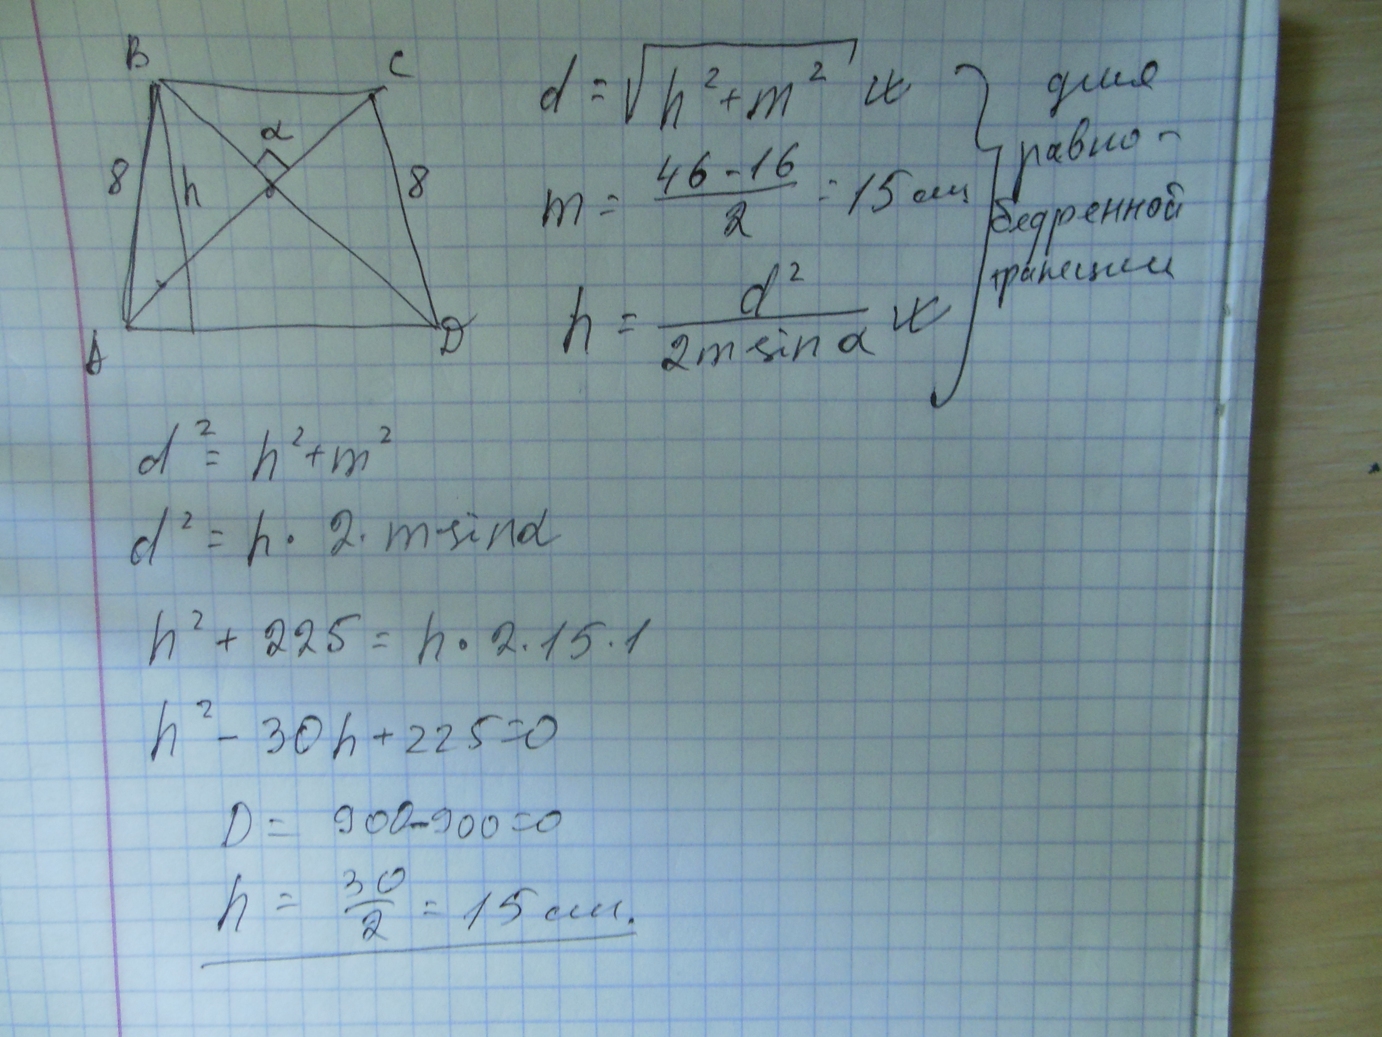 B C
α
8 h 8
A D
d = √h²+m² и
m = 46-16 / 2 = 15 см
h = d² / 2m sin α и
для
равно-
бедренной
трапеции
d² = h²+m²
d² = h · 2 · m·sinα
h² + 225 = h · 2 · 15 · 1
h² - 30h + 225 = 0
D = 900-900=0
h = 30 / 2 = 15 см.